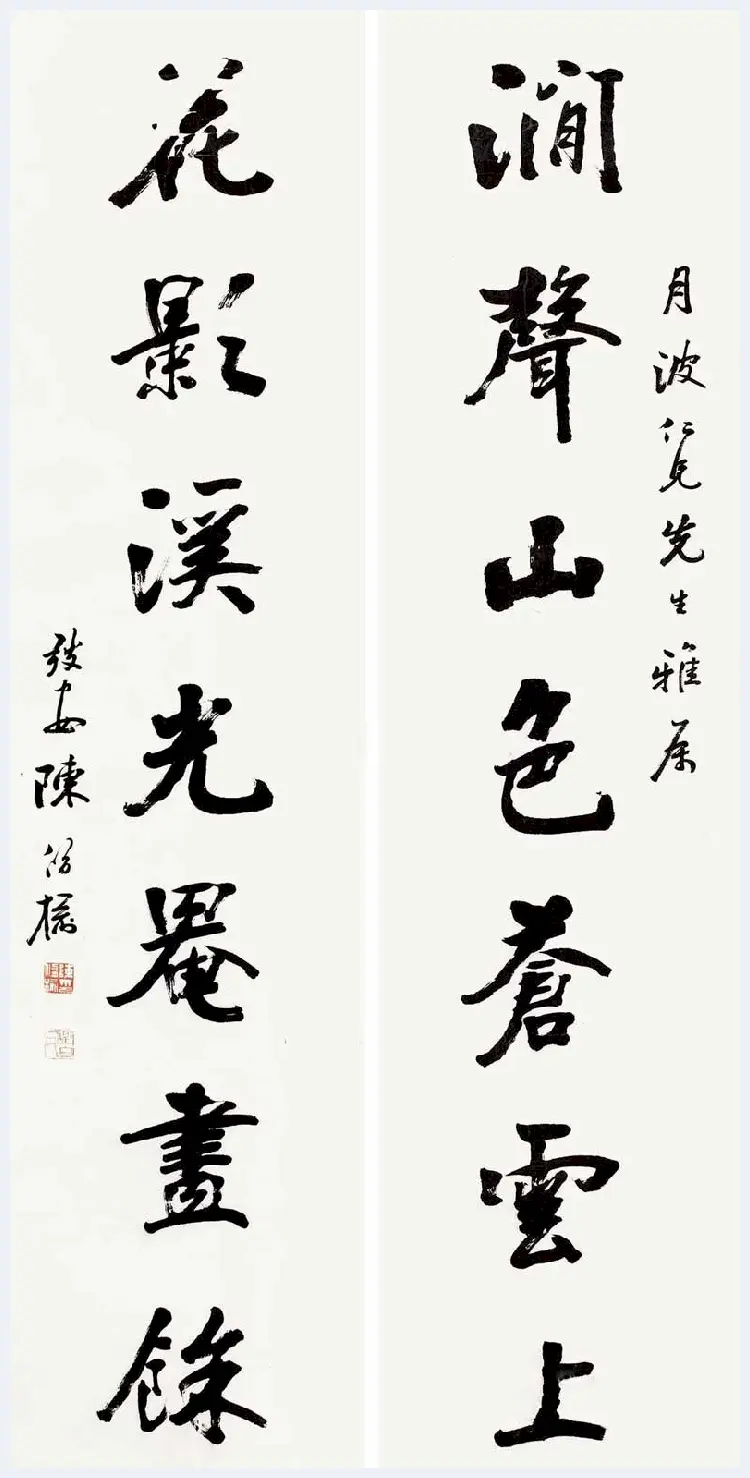 月波仁兄先生雅属
澗聲山色蒼雲上
花影溪光罨畫餘
陳